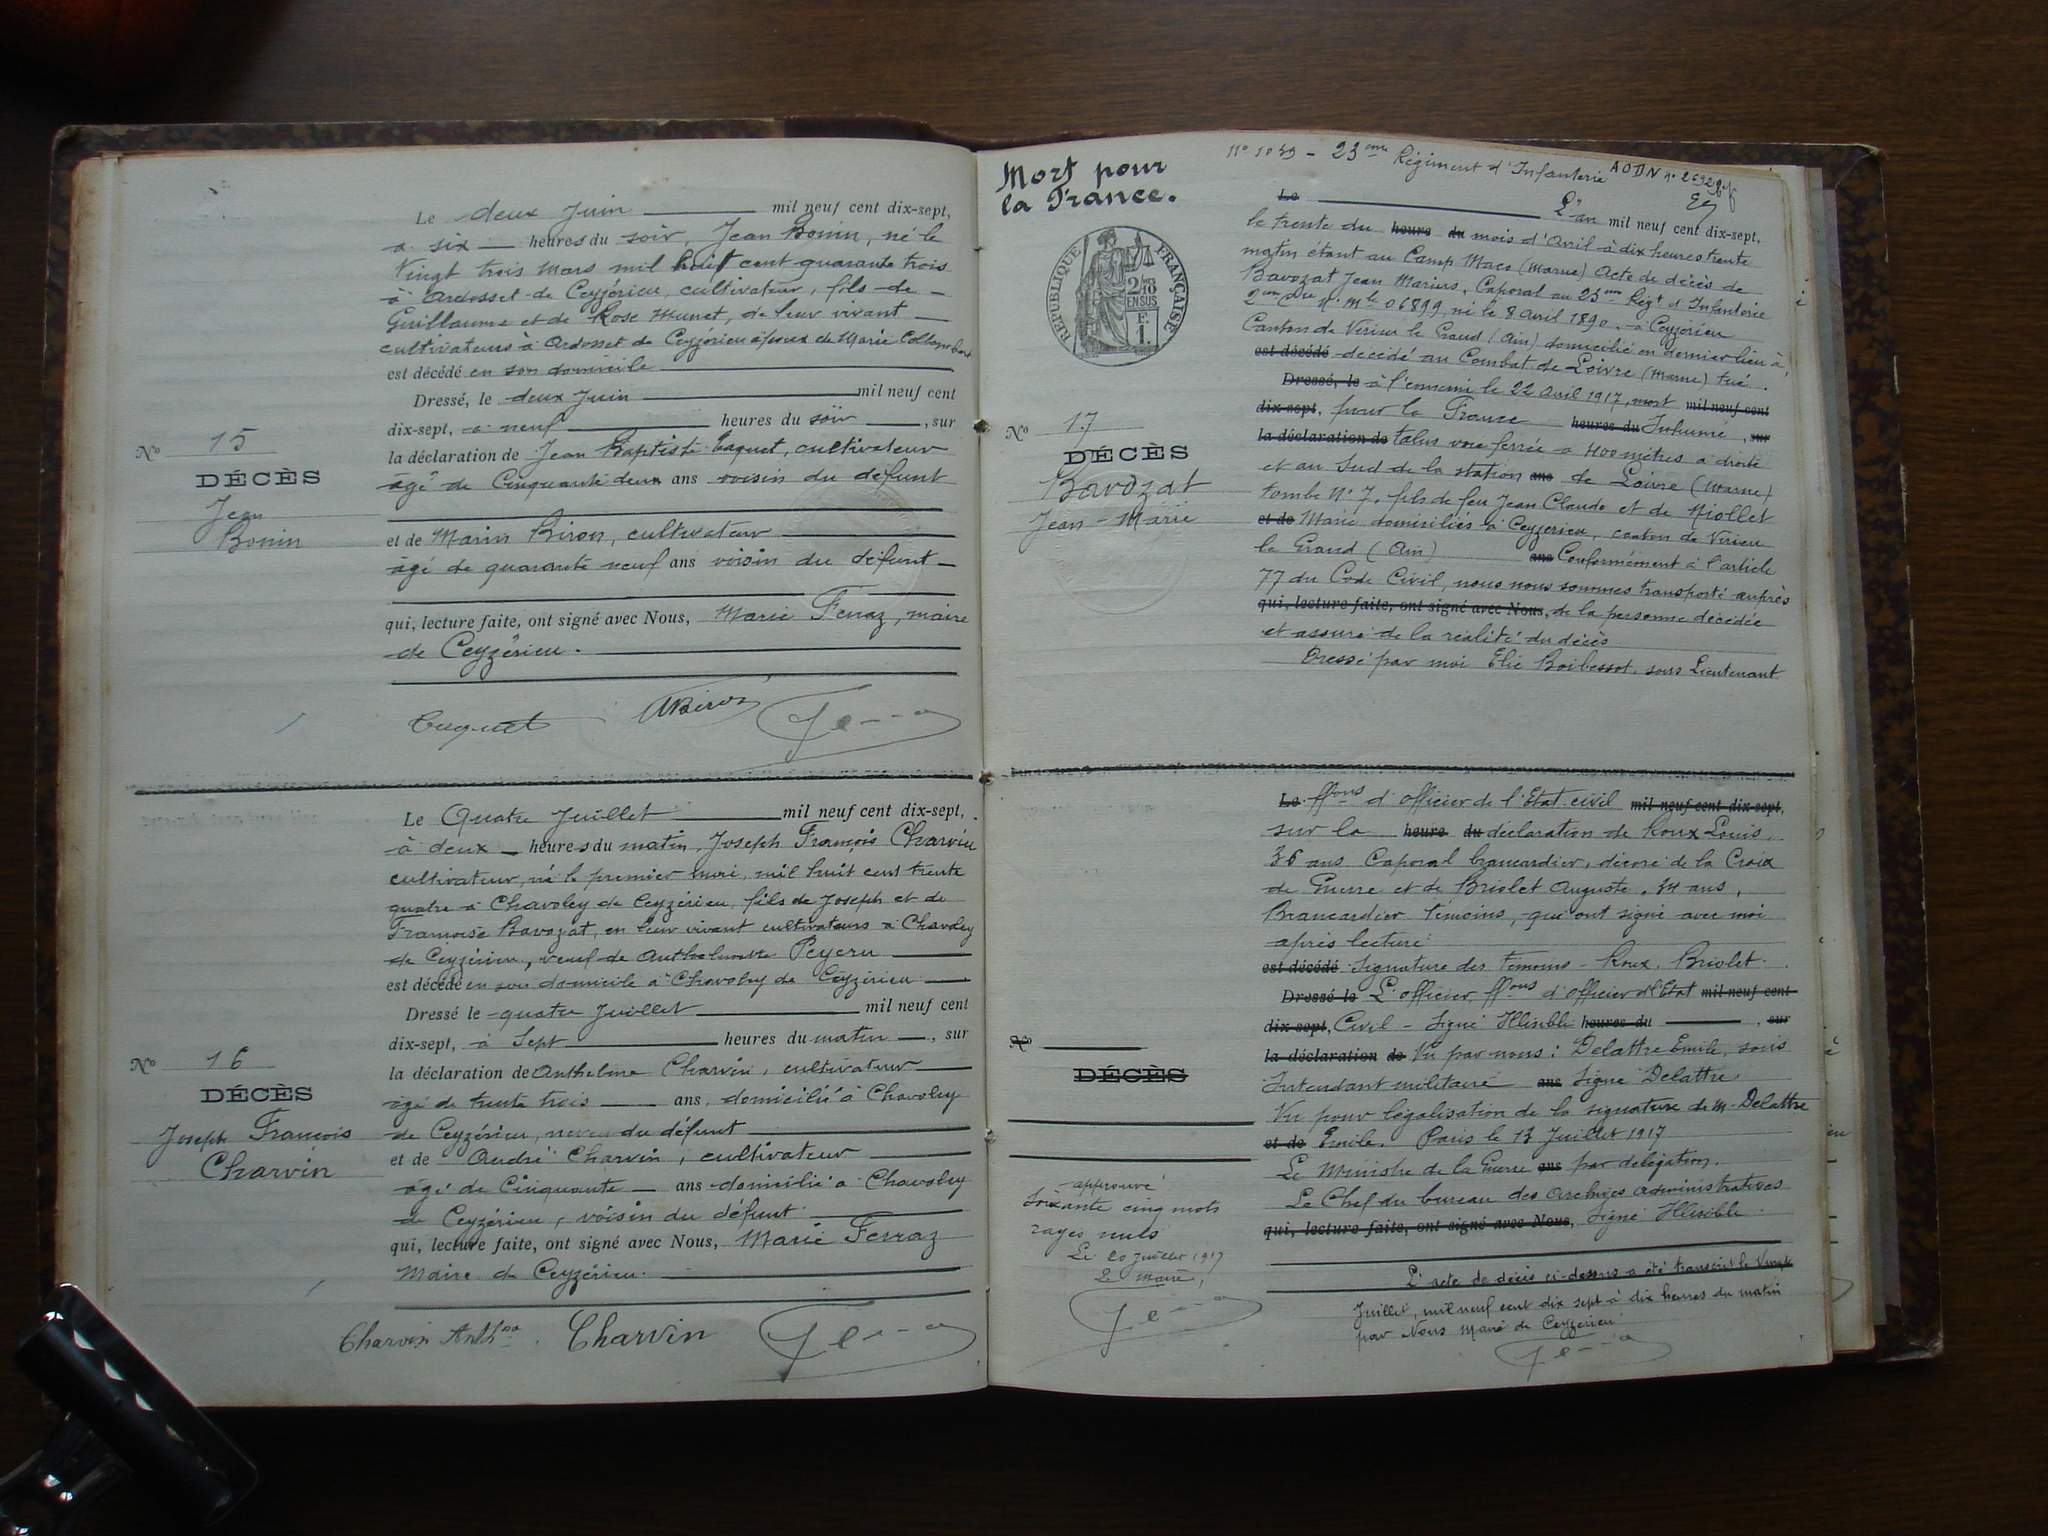 Le deux Juin mil neuf cent dix-sept,
a six heures du soir, Jean Bonin, né le
Vingt trois Mars mil huit cent quarante trois
à Ardosset de Ceyzérieu, cultivateur, fils de
Guillaume et de Rose Munet, de leur vivant
cultivateurs à Ardosset de Ceyzérieu époux de Marie Collombert
est décédé en son domicile
Dressé, le deux Juin mil neuf cent
dix-sept, à neuf heures du soir, sur
la déclaration de Jean Baptiste, cultivateur
âgé de Cinquante deux ans voisin du défunt
et de Marin Biron, cultivateur
âgé de quarante neuf ans voisin du défunt
qui, lecture faite, ont signé avec Nous, Marie Ferraz, maire
de Ceyzérieu.
No 15
DÉCÈS
Jean
Bonin
Le Quatre Juillet mil neuf cent dix-sept,
à deux heures du matin, Joseph François Charvin
cultivateur, né le premier mil huit cent trente
quatre à Chavoley de Ceyzérieu, fils de Joseph et de
Françoise Bavozat, en leur vivant cultivateurs à Chavoley
de Ceyzérieu, veuf de Anthelmette Peyeru
est décédé en son domicile à Chavoley de Ceyzérieu
Dressé le quatre Juillet mil neuf cent
dix-sept, à Sept heures du matin, sur
la déclaration de Anthelme Charvin, cultivateur
âgé de trente trois ans, domicilié à Chavoley
de Ceyzérieu, neveu du défunt
et de André Charvin, cultivateur
âgé de Cinquante ans domicilié à Chavoley
de Ceyzérieu, voisin du défunt
qui, lecture faite, ont signé avec Nous, Marie Ferraz
Maire de Ceyzérieu.
No 16
DÉCÈS
Joseph François
Charvin
Charvin Anth. Charvin
Mort pour
la France.
RÉPUBLIQUE FRANÇAISE
No 17
DÉCÈS
Bavozat
Jean-Marie
23eme Régiment d'Infanterie
Le L'an mil neuf cent dix-sept,
le trente du heure du mois d'Avril à dix heures trente
matin étant au Camp Macs (Marne) Acte de décès de
Bavozat Jean Marius, Caporal au 23eme Régt d'Infanterie
2eme Cie N° Mle 06899, né le 8 Avril 1890, à Ceyzérieu
Canton de Virieu le Grand (Ain) domicilié en dernier lieu à,
est décédé décédé au Combat de Loivre (Marne) tué.
Dressé, le à l'ennemi le 22 Avril 1917, mort mil neuf cent
dix-sept, pour la France heures du Inhumé, sur
la déclaration de talus voie ferrée à 400 mètres à droite
et au Sud de la station ans de Loivre (Marne)
tombe N° 7, fils de feu Jean Claude et de Niollet
et de Marie domiciliés à Ceyzérieu, canton de Virieu
le Grand (Ain) ans Conformément à l'article
77 du Code Civil, nous nous sommes transporté auprès
qui, lecture faite, ont signé avec Nous, de la personne décédée
et assuré de la réalité du décès
Dressé par moi Elie Boibessot, sous Lieutenant
Le ffons d'officier de l'Etat civil mil neuf cent dix-sept,
sur la heure du déclaration de Roux Louis,
36 ans Caporal brancardier, décoré de la Croix
de Guerre et de Briolet Auguste, ans,
Brancardier témoins, qui ont signé avec moi
après lecture
est décédé Signature des témoins - Roux. Briolet.
Dressé le L'officier ffons d'officier d'Etat mil neuf cent
dix-sept, Civil - Signé Illisible heures du, sur
la déclaration de Vu par nous: Delattre Emile, sous
Intendant militaire ans Signé Delattre
Vu pour légalisation de la signature de M. Delattre
et de Emile. Paris le 13 Juillet 1917
Le Ministre de la Guerre ans par délégation.
Le Chef du bureau des Archives administratives
qui, lecture faite, ont signé avec Nous, Signé Illisible.
No
DÉCÈS
approuvé
Soixante cinq mots
rayés nuls
Le 20 Juillet 1917
Le Maire,
L'acte de décès ci-dessus a été transcrit le Vingt
Juillet, mil neuf cent dix sept à dix heures du matin
par Nous Maire de Ceyzérieu